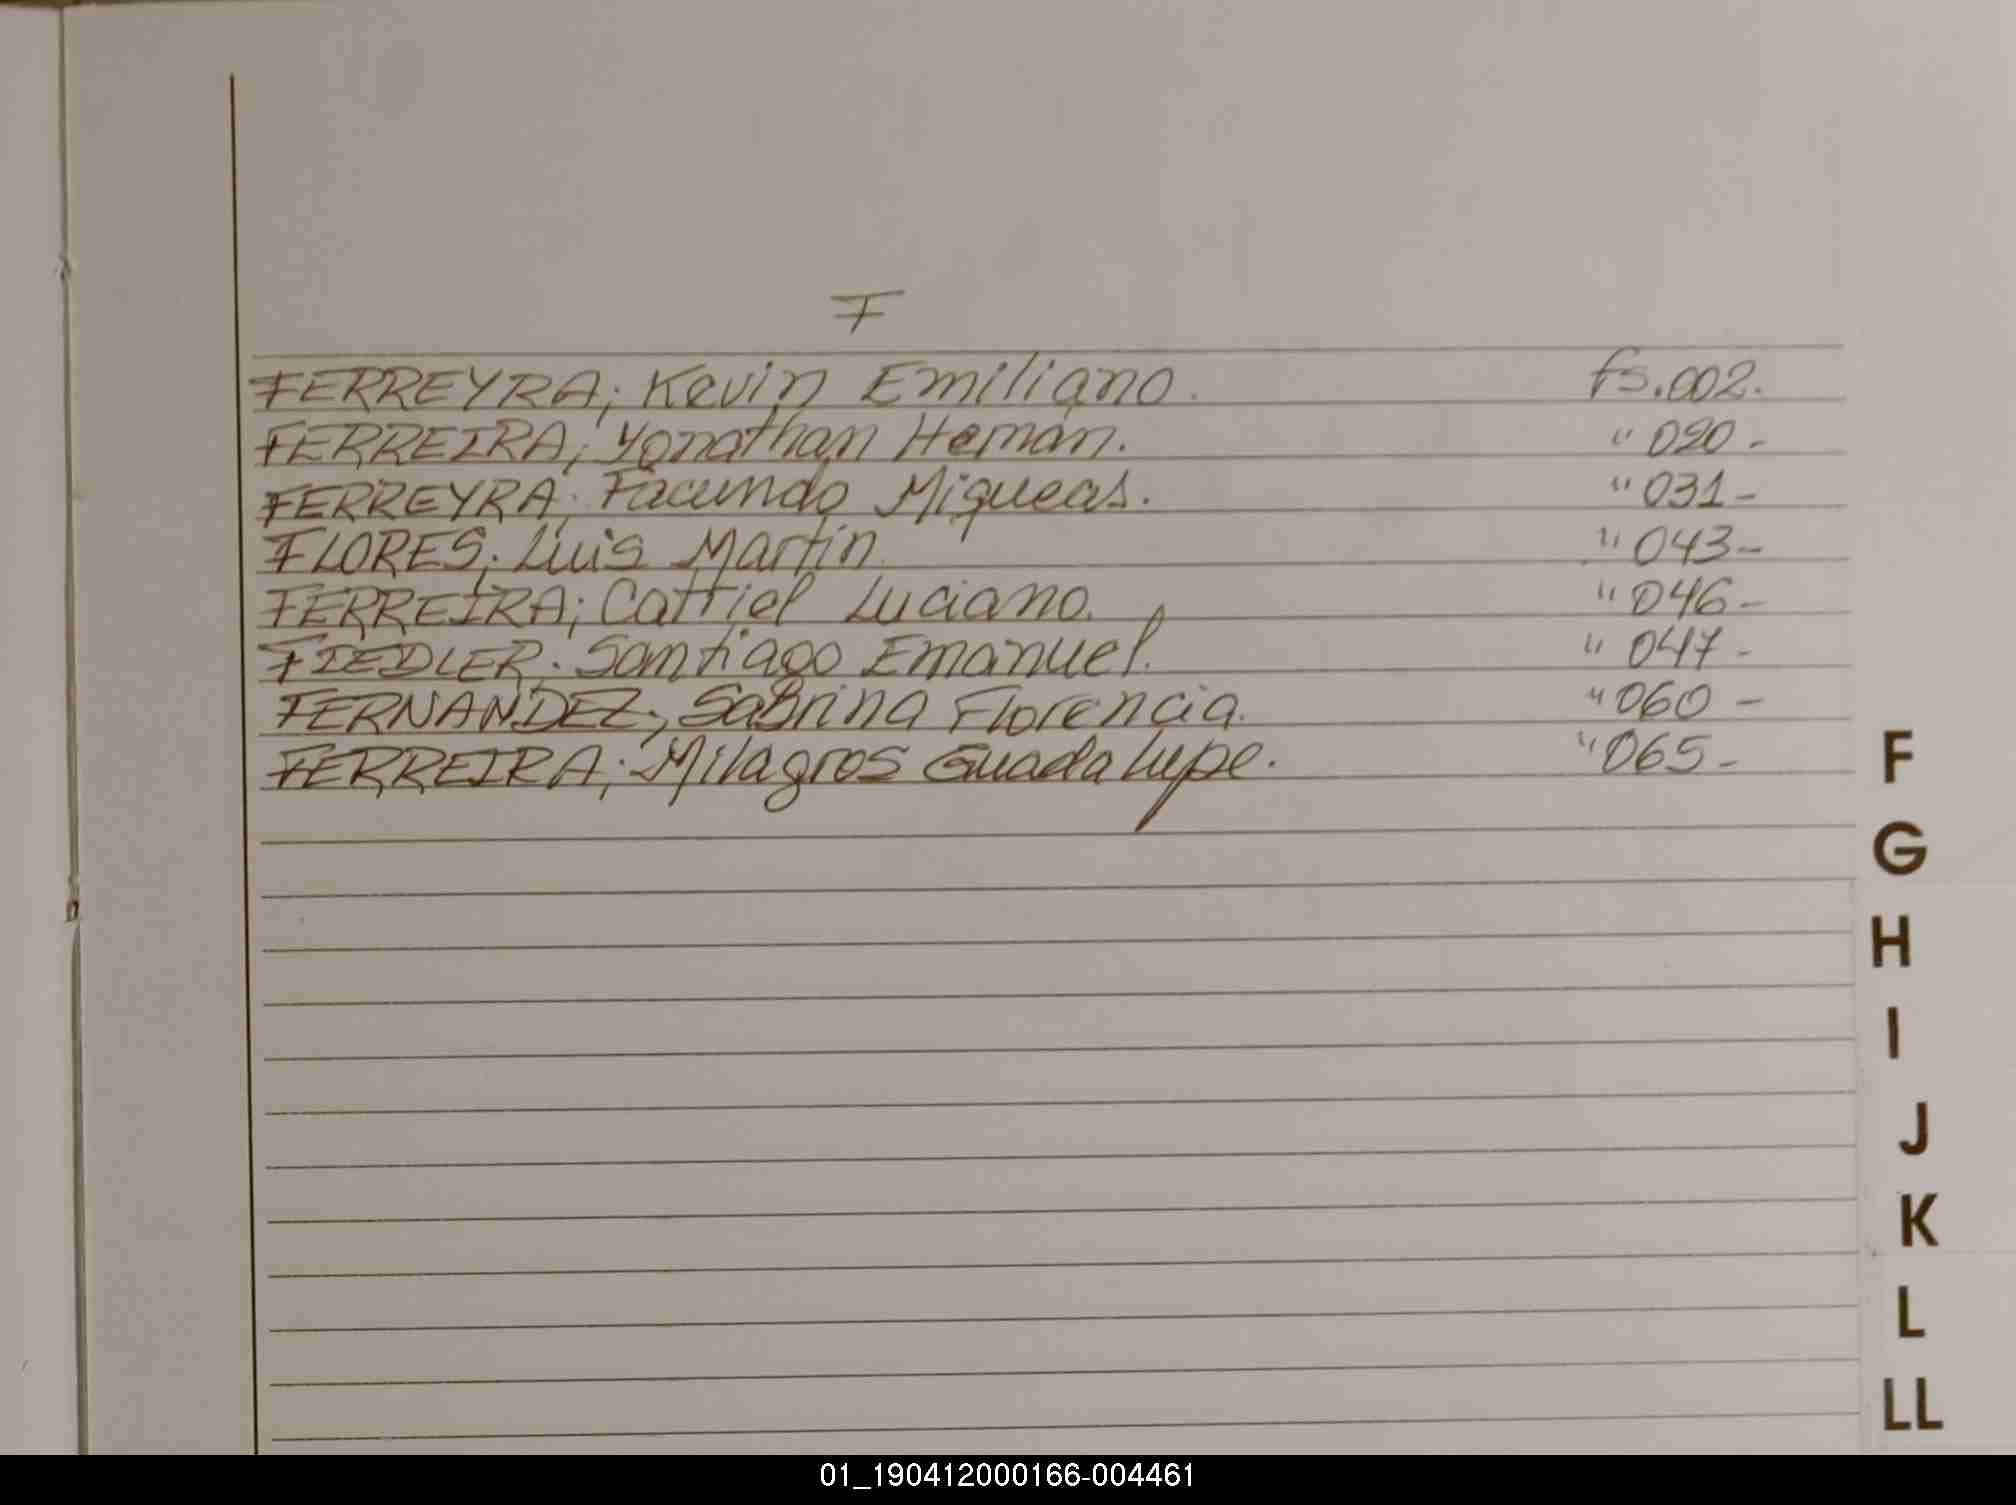 F
FERREYRA; Kevin Emiliano. fs.002.
FERREIRA; Yonathan Hernán. " 020-
FERREYRA; Facundo Miqueas. " 031-
FLORES; Luis Martín " 043-
FERREIRA; Catriel Luciano. " 046-
FIEDLER; Santiago Emanuel. " 047-
FERNANDEZ; Sabrina Florencia. " 060-
FERREIRA; Milagros Guadalupe. " 065-
F
G
H
I
J
K
L
LL
01_190412000166-004461